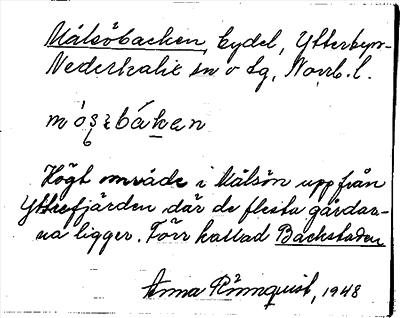 Målsöbacken, bydel, Ytterbyn-
Nederkalix sn o tg, Norrb. l.
Högt område i Målsön upp från
Yttrefjärden där de flesta gårdar-
na ligger. Förr kallad Backstaden
Anna Rönnquist, 1948